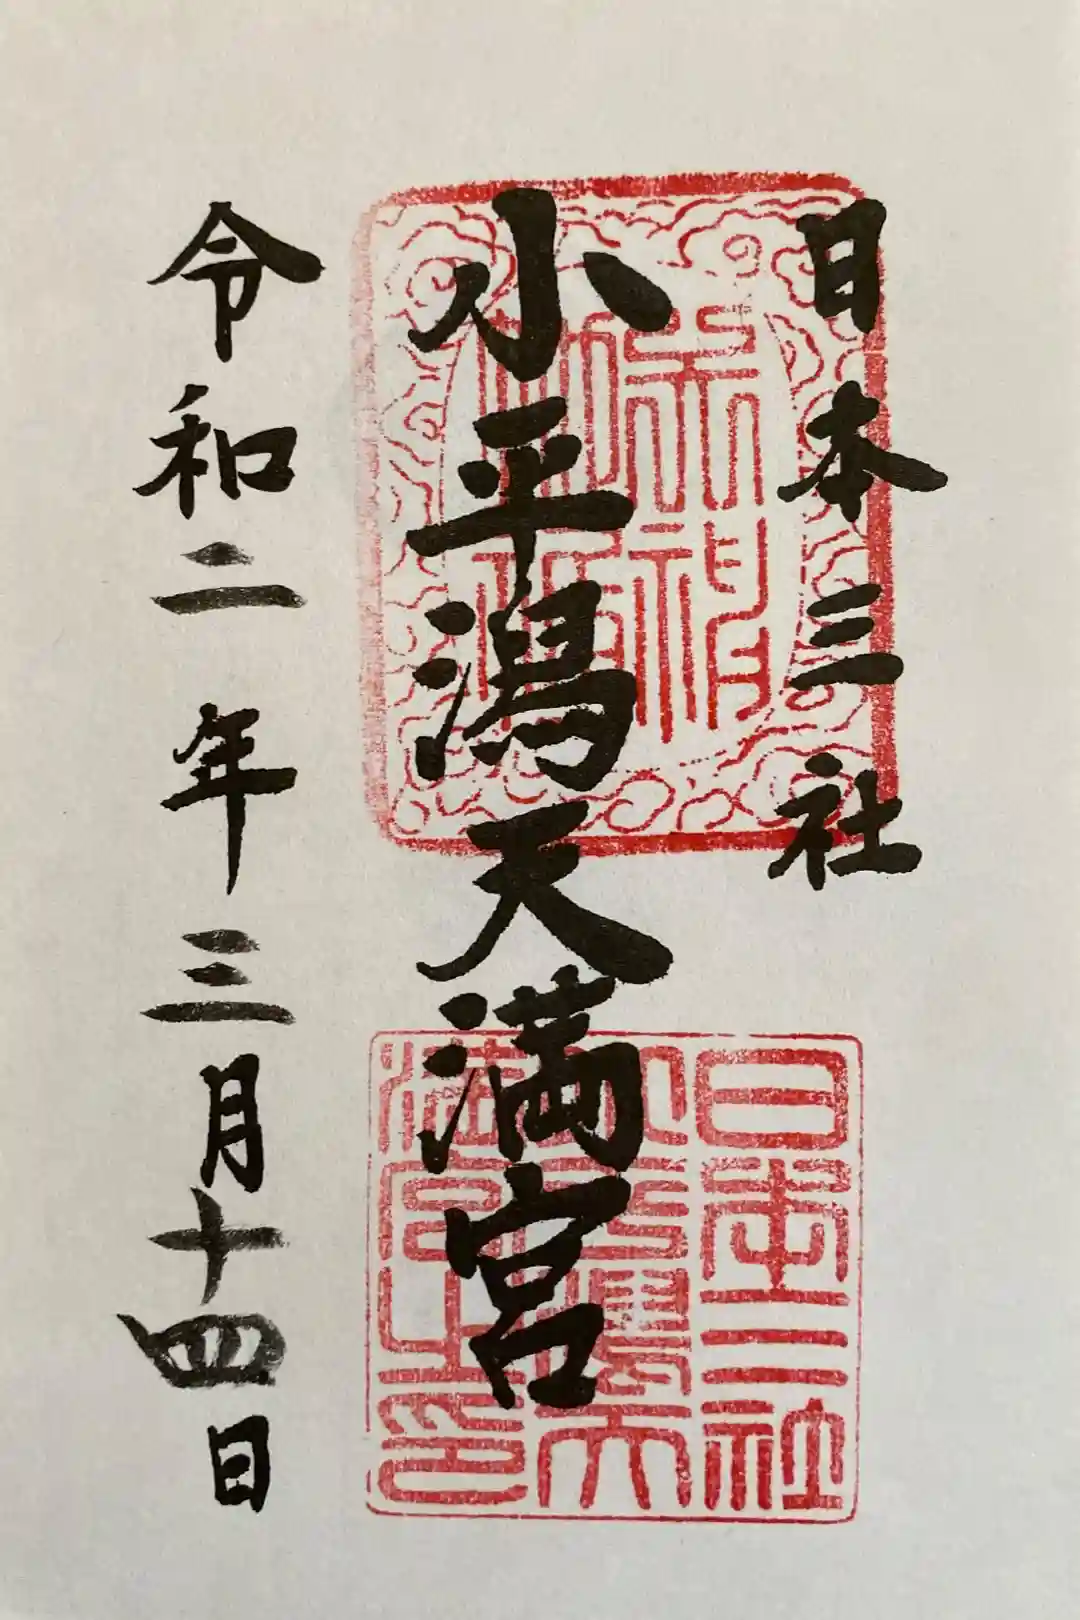 日本三社
小平潟天満宮
令和二年三月十四日
日本三社